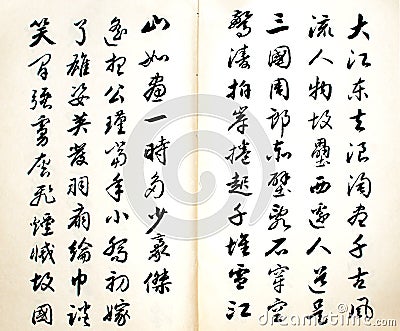 大江东去浪淘盡千古風
流人物故壘西邊人道是
三國周郎赤壁亂石穿空
驚濤拍岸捲起千堆雪江
山如畫一時多少豪傑
遙想公瑾當年小喬初嫁
了雄姿英發羽扇綸巾談
笑间强虜灰飛煙滅故國
dreamstime.com